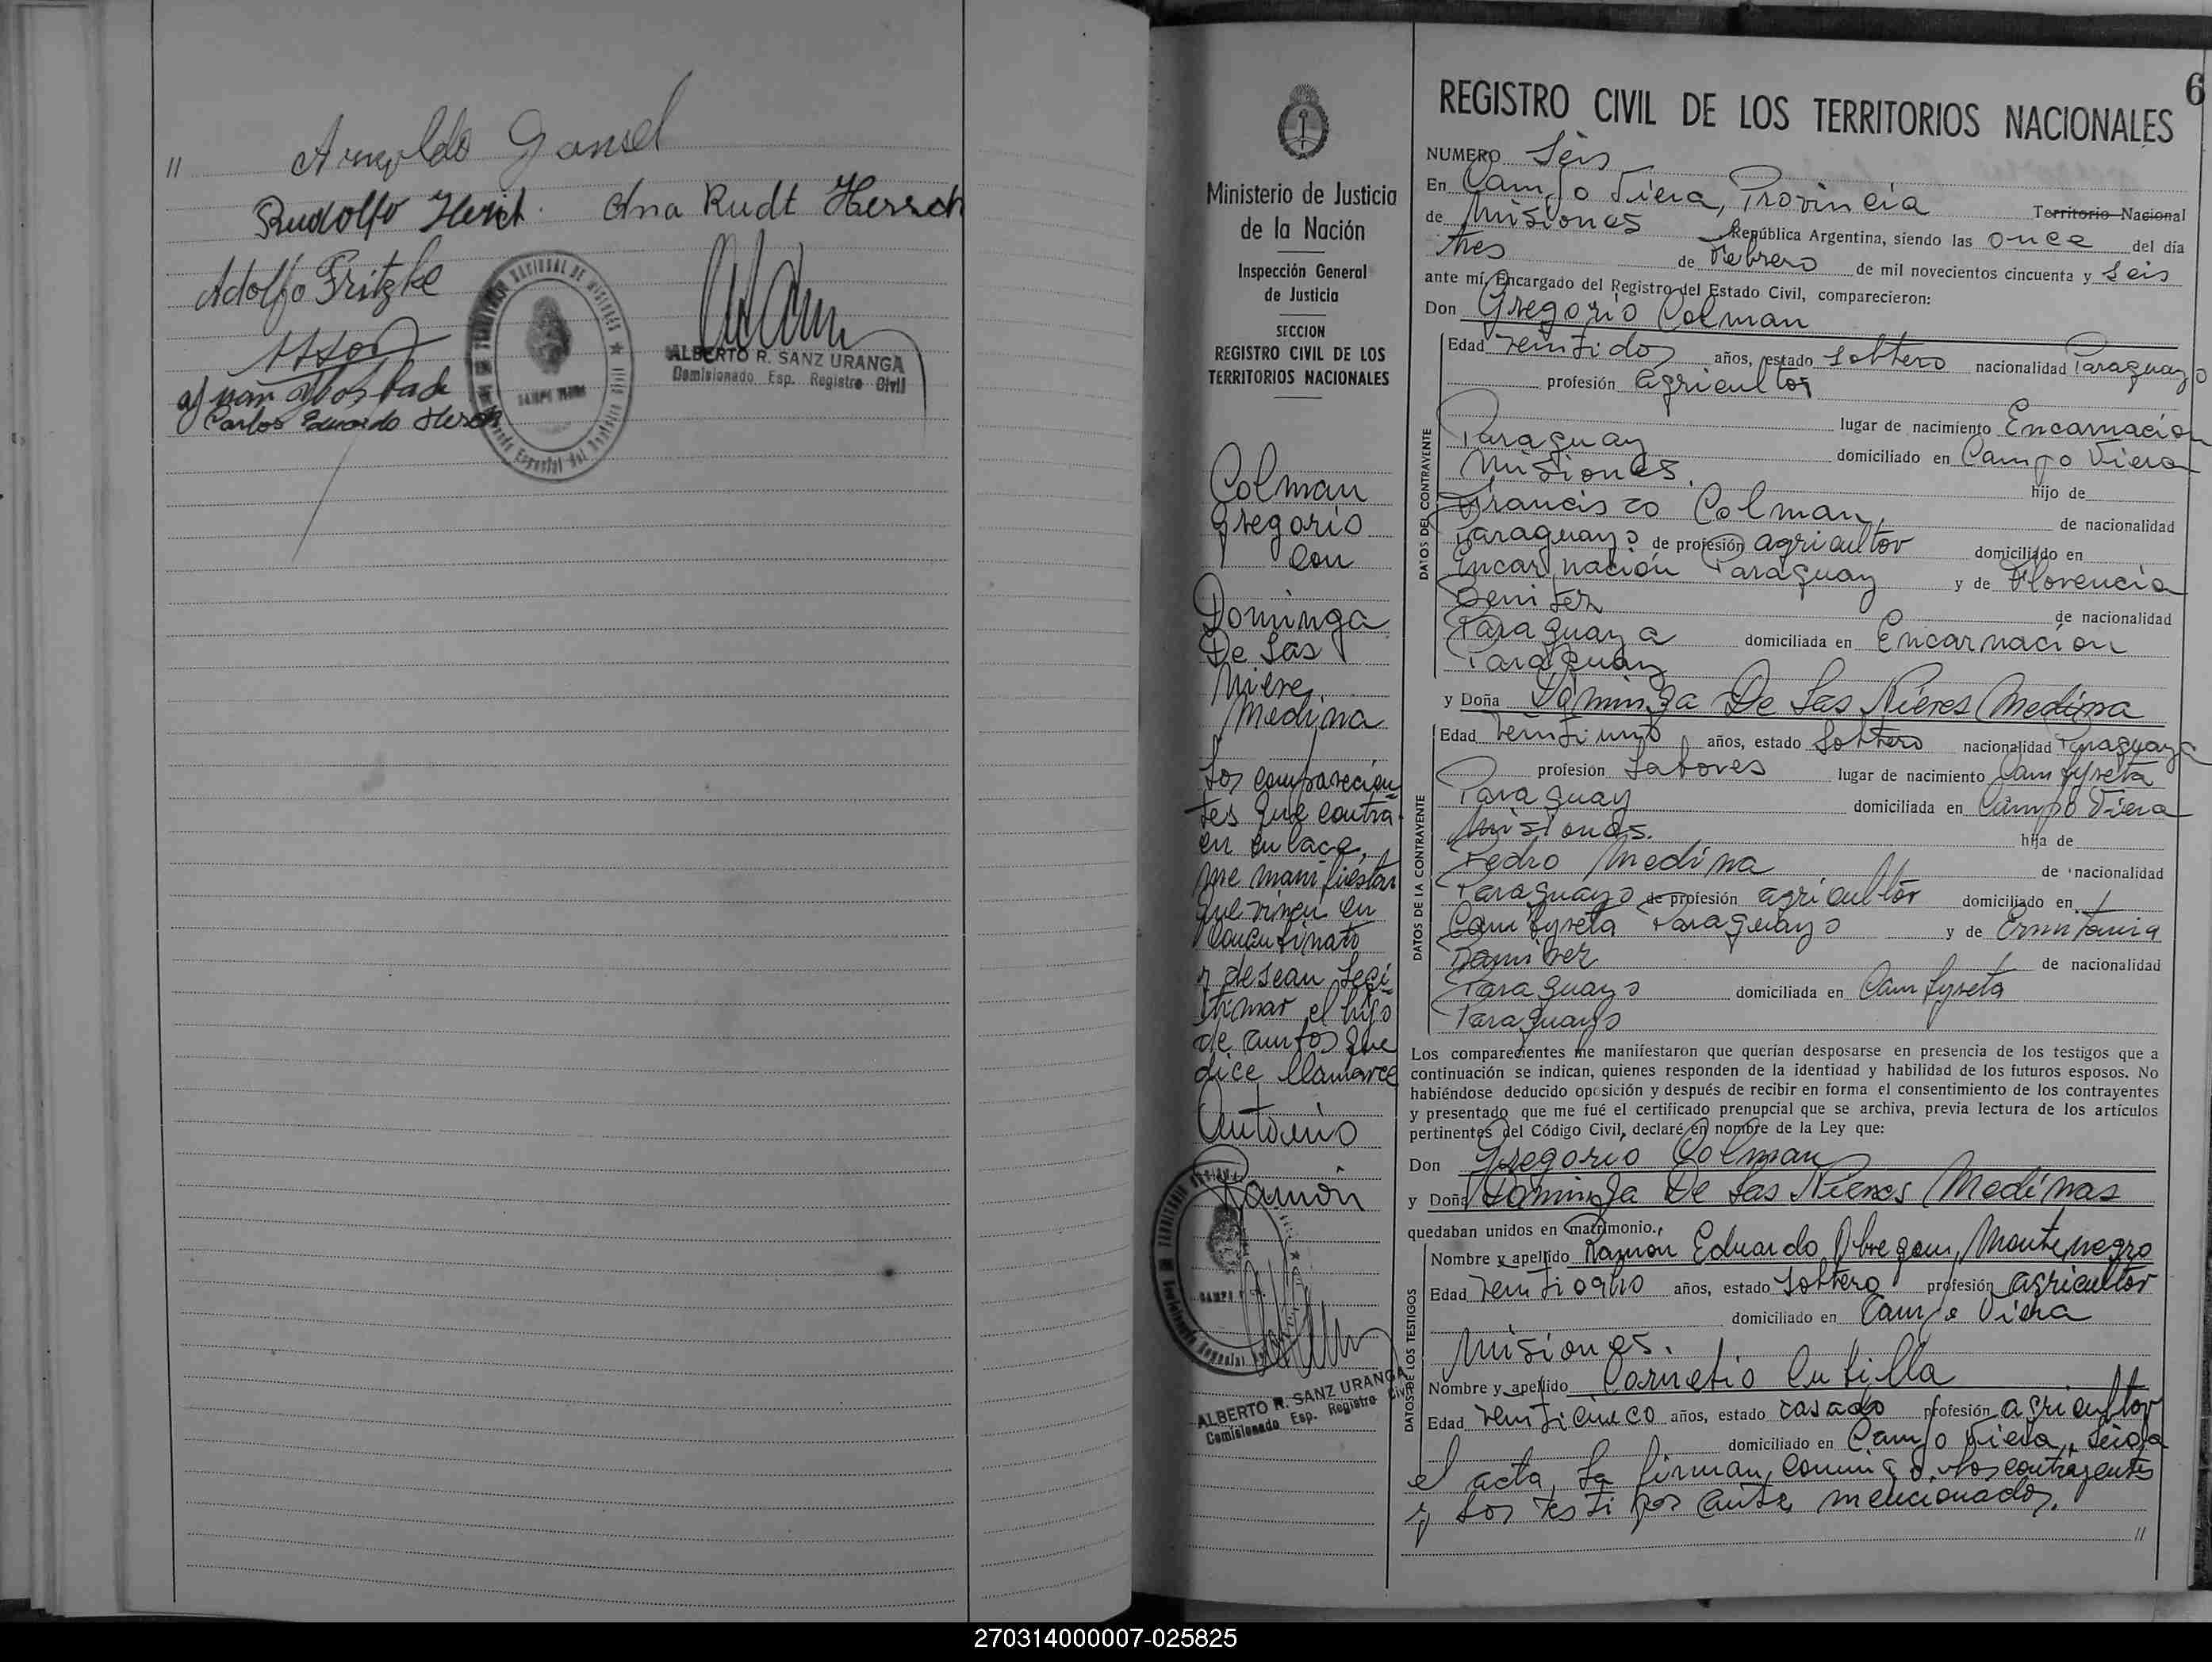 // Arnoldo Gansel
Rudolfo Hersch. Ana Rudt Hersch
Adolfo Fritzke
ALBERTO R. SANZ URANGA
Comisionado Esp. Registro Civil
Carlos Eduardo Hersch
6
Ministerio de Justicia
de la Nación
Inspección General
de Justicia
SECCION
REGISTRO CIVIL DE LOS
TERRITORIOS NACIONALES
Colman
Gregorio
con
Dominga
De Las
Nieve
Medina
Los comparecien
tes que contra
en enlace,
me manifiestan
que viven en
concubinato
y desean legi
timar el hijo
de ambos que
dice llamarce
Antonio
Ramón
ALBERTO R. SANZ URANGA
Comisionado Esp. Registro Civil
REGISTRO CIVIL DE LOS TERRITORIOS NACIONALES
NUMERO Seis
En Campo Viera, Provincia Territorio Nacional
de Misiones República Argentina, siendo las once del día
tres de Febrero de mil novecientos cincuenta y seis
ante mí, Encargado del Registro del Estado Civil, comparecieron:
Don Gregorio Colman
DATOS DEL CONTRAYENTE
Edad veintidos años, estado soltero nacionalidad Paraguayo
profesión agricultor
lugar de nacimiento Encarnación
Paraguay domiciliado en Campo Viera
Misiones. hijo de
Francisco Colman, de nacionalidad
Paraguayo de profesión agricultor domiciliado en
Encarnación Paraguay y de Florencia
Benitez de nacionalidad
Paraguaya domiciliada en Encarnación
Paraguay
y Doña Dominga De Las Nieves Medina
DATOS DE LA CONTRAYENTE
Edad veintiuno años, estado soltero nacionalidad Paraguaya
profesión Labores lugar de nacimiento Cambyreta
Paraguay domiciliada en Campo Viera
Misiones. hija de
Pedro Medina de nacionalidad
Paraguayo de profesión agricultor domiciliado en
Cambyreta Paraguayo y de
Ramirez de nacionalidad
Paraguayo domiciliada en Cambyreta
Paraguayo
Los comparecientes me manifestaron que querían desposarse en presencia de los testigos que a
continuación se indican, quienes responden de la identidad y habilidad de los futuros esposos. No
habiéndose deducido oposición y después de recibir en forma el consentimiento de los contrayentes
y presentado que me fué el certificado prenupcial que se archiva, previa lectura de los artículos
pertinentes del Código Civil, declaré en nombre de la Ley que:
Don Gregorio Colman
y Doña Dominga De Las Nieves Medinas
quedaban unidos en matrimonio.
DATOS DE LOS TESTIGOS
Nombre y apellido Ramon Eduardo Obregon, Montenegro
Edad veintiocho años, estado soltero profesión agricultor
domiciliado en Campo Viera
Misiones.
Nombre y apellido Cornelio Cubilla
Edad veinticinco años, estado casado profesión agricultor
domiciliado en Campo Viera, Leida
el acta, la firman, conmigo, los contrayentes
y los testigos antes mencionados.
//
270314000007-025825